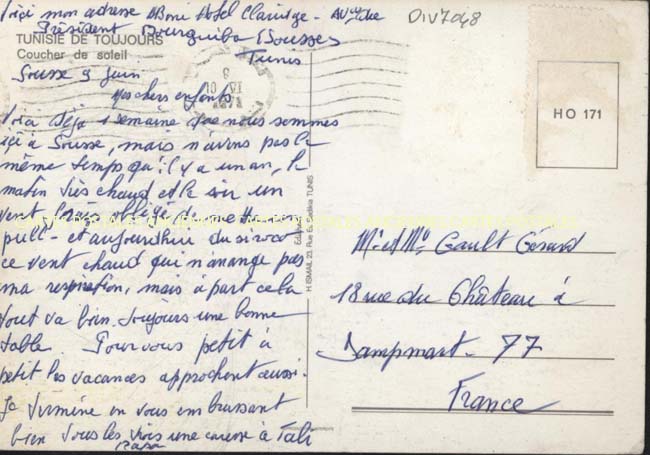 Voici mon adresse Hotel Claridge - Av
Président Bourguiba (Sousse)
Tunis
TUNISIE DE TOUJOURS
Coucher de soleil
Sousse 9 Juin
Mes chers enfants
Voici déjà 1 semaine que nous sommes
ici à Sousse, mais n'avons pas le
même temps qu'il y a un an, le
matin très chaud et le soir un
vent obligé de mettre un
pull - et aujourd'hui du siroco
ce vent chaud qui n'arrange pas
ma respiration, mais à part cela
tout va bien. toujours une bonne
table Pour vous petit à
petit les vacances approchent aussi.
Je termine en vous embrassant
bien tous les trois une caresse à Tali
Papa
DIV7048
HO 171
H. ISMAIL 23, Rue Es. Sadikia TUNIS
Mr et Mme Gault Gérard
18 rue du Château à
Dampmart - 77
France